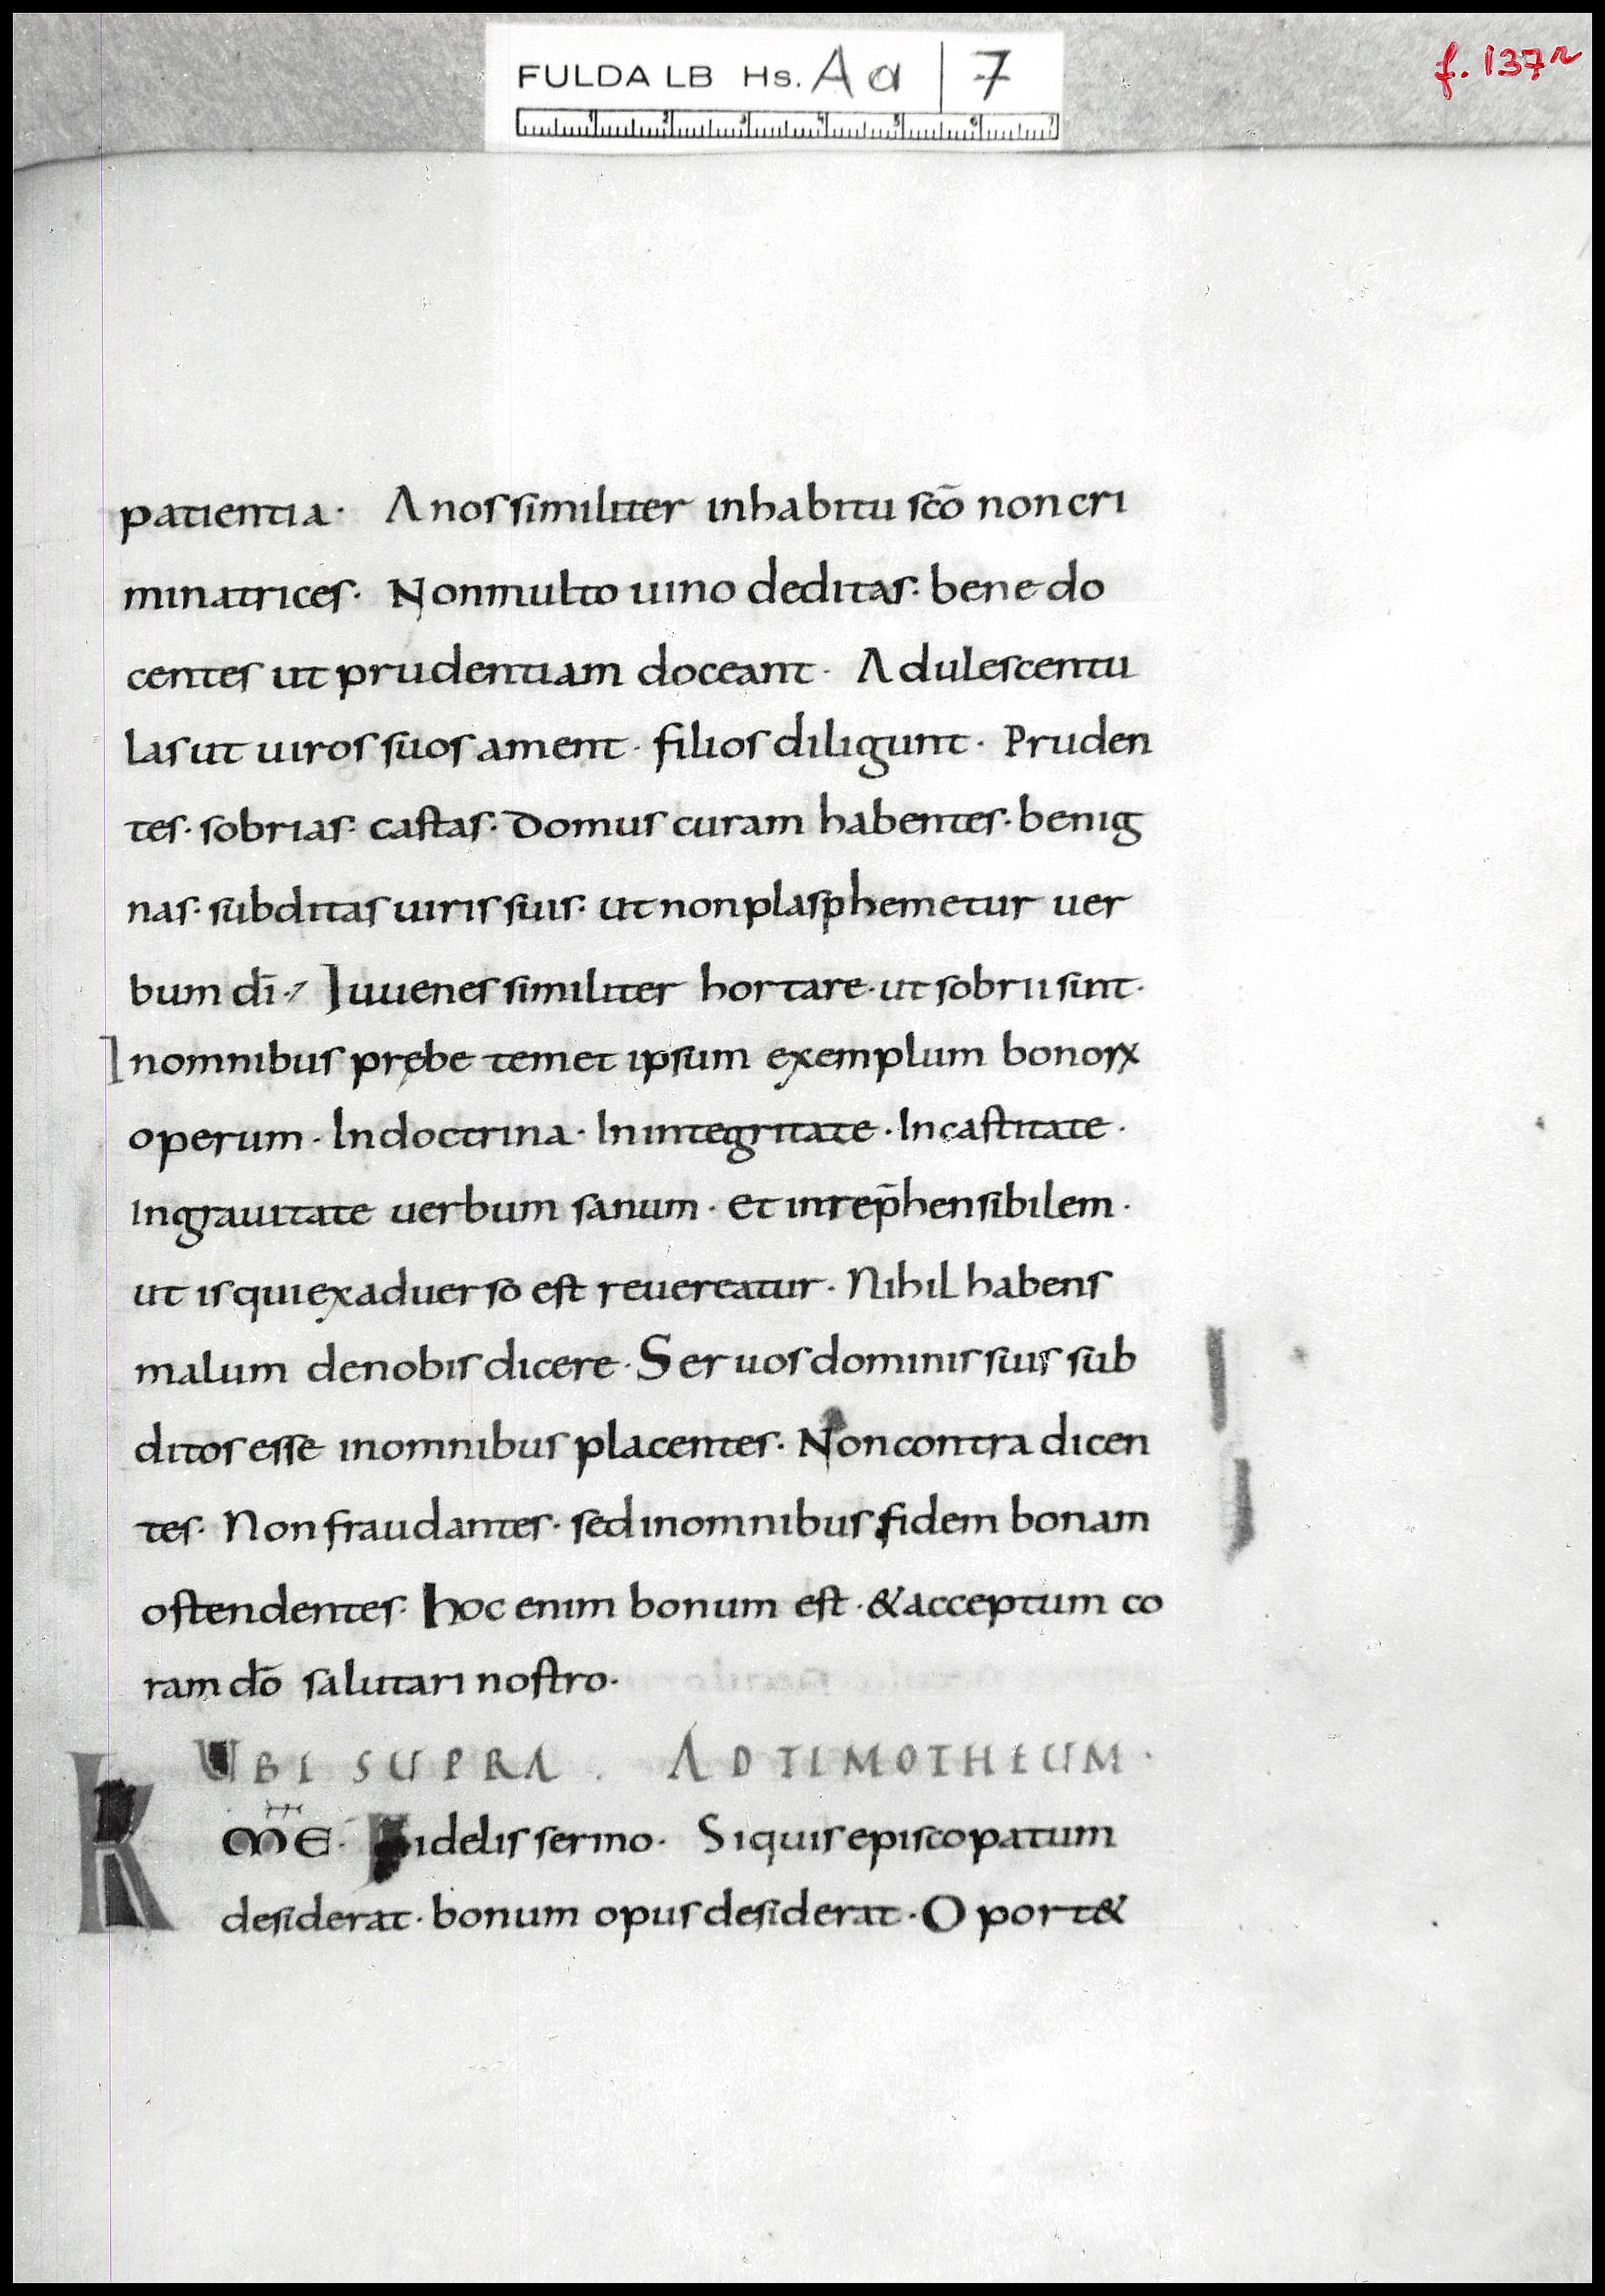 FULDA LB Hs. Aa | 7
f. 137r
patientia· Anos similiter inhabitu scō non cri
minatrices· Non multo uino deditas· bene do
centes ut prudentiam doceant· Adulescentu
las ut uiros suos ament· filios diligunt· Pruden
tes· sobrias· castas· Domus curam habentes· benig
nas· subditas uiris suis· ut non plasphemetur uer
bum dī·, Iuuenes similiter hortare· ut sobrii sint·
Inomnibus prębe temet ipsum exemplum bonorꝝ
operum· In doctrina· In integritate· In castitate·
Ingrauitate uerbum sanum· et inrep̄hensibilem·
ut is qui exaduerso est reuereatur· Nihil habens
malum denobis dicere· Seruos dominis suis sub
ditos esse inomnibus placentes· Non contra dicen
tes· Non fraudantes· sed inomnibus fidem bonam
ostendentes· hoc enim bonum est· & acceptum co
ram dō salutari nostro·
UBI SUPRA. AD TIMOTHEUM·
KME· Fidelis sermo· Siquis episcopatum
desiderat· bonum opus desiderat· Oport&